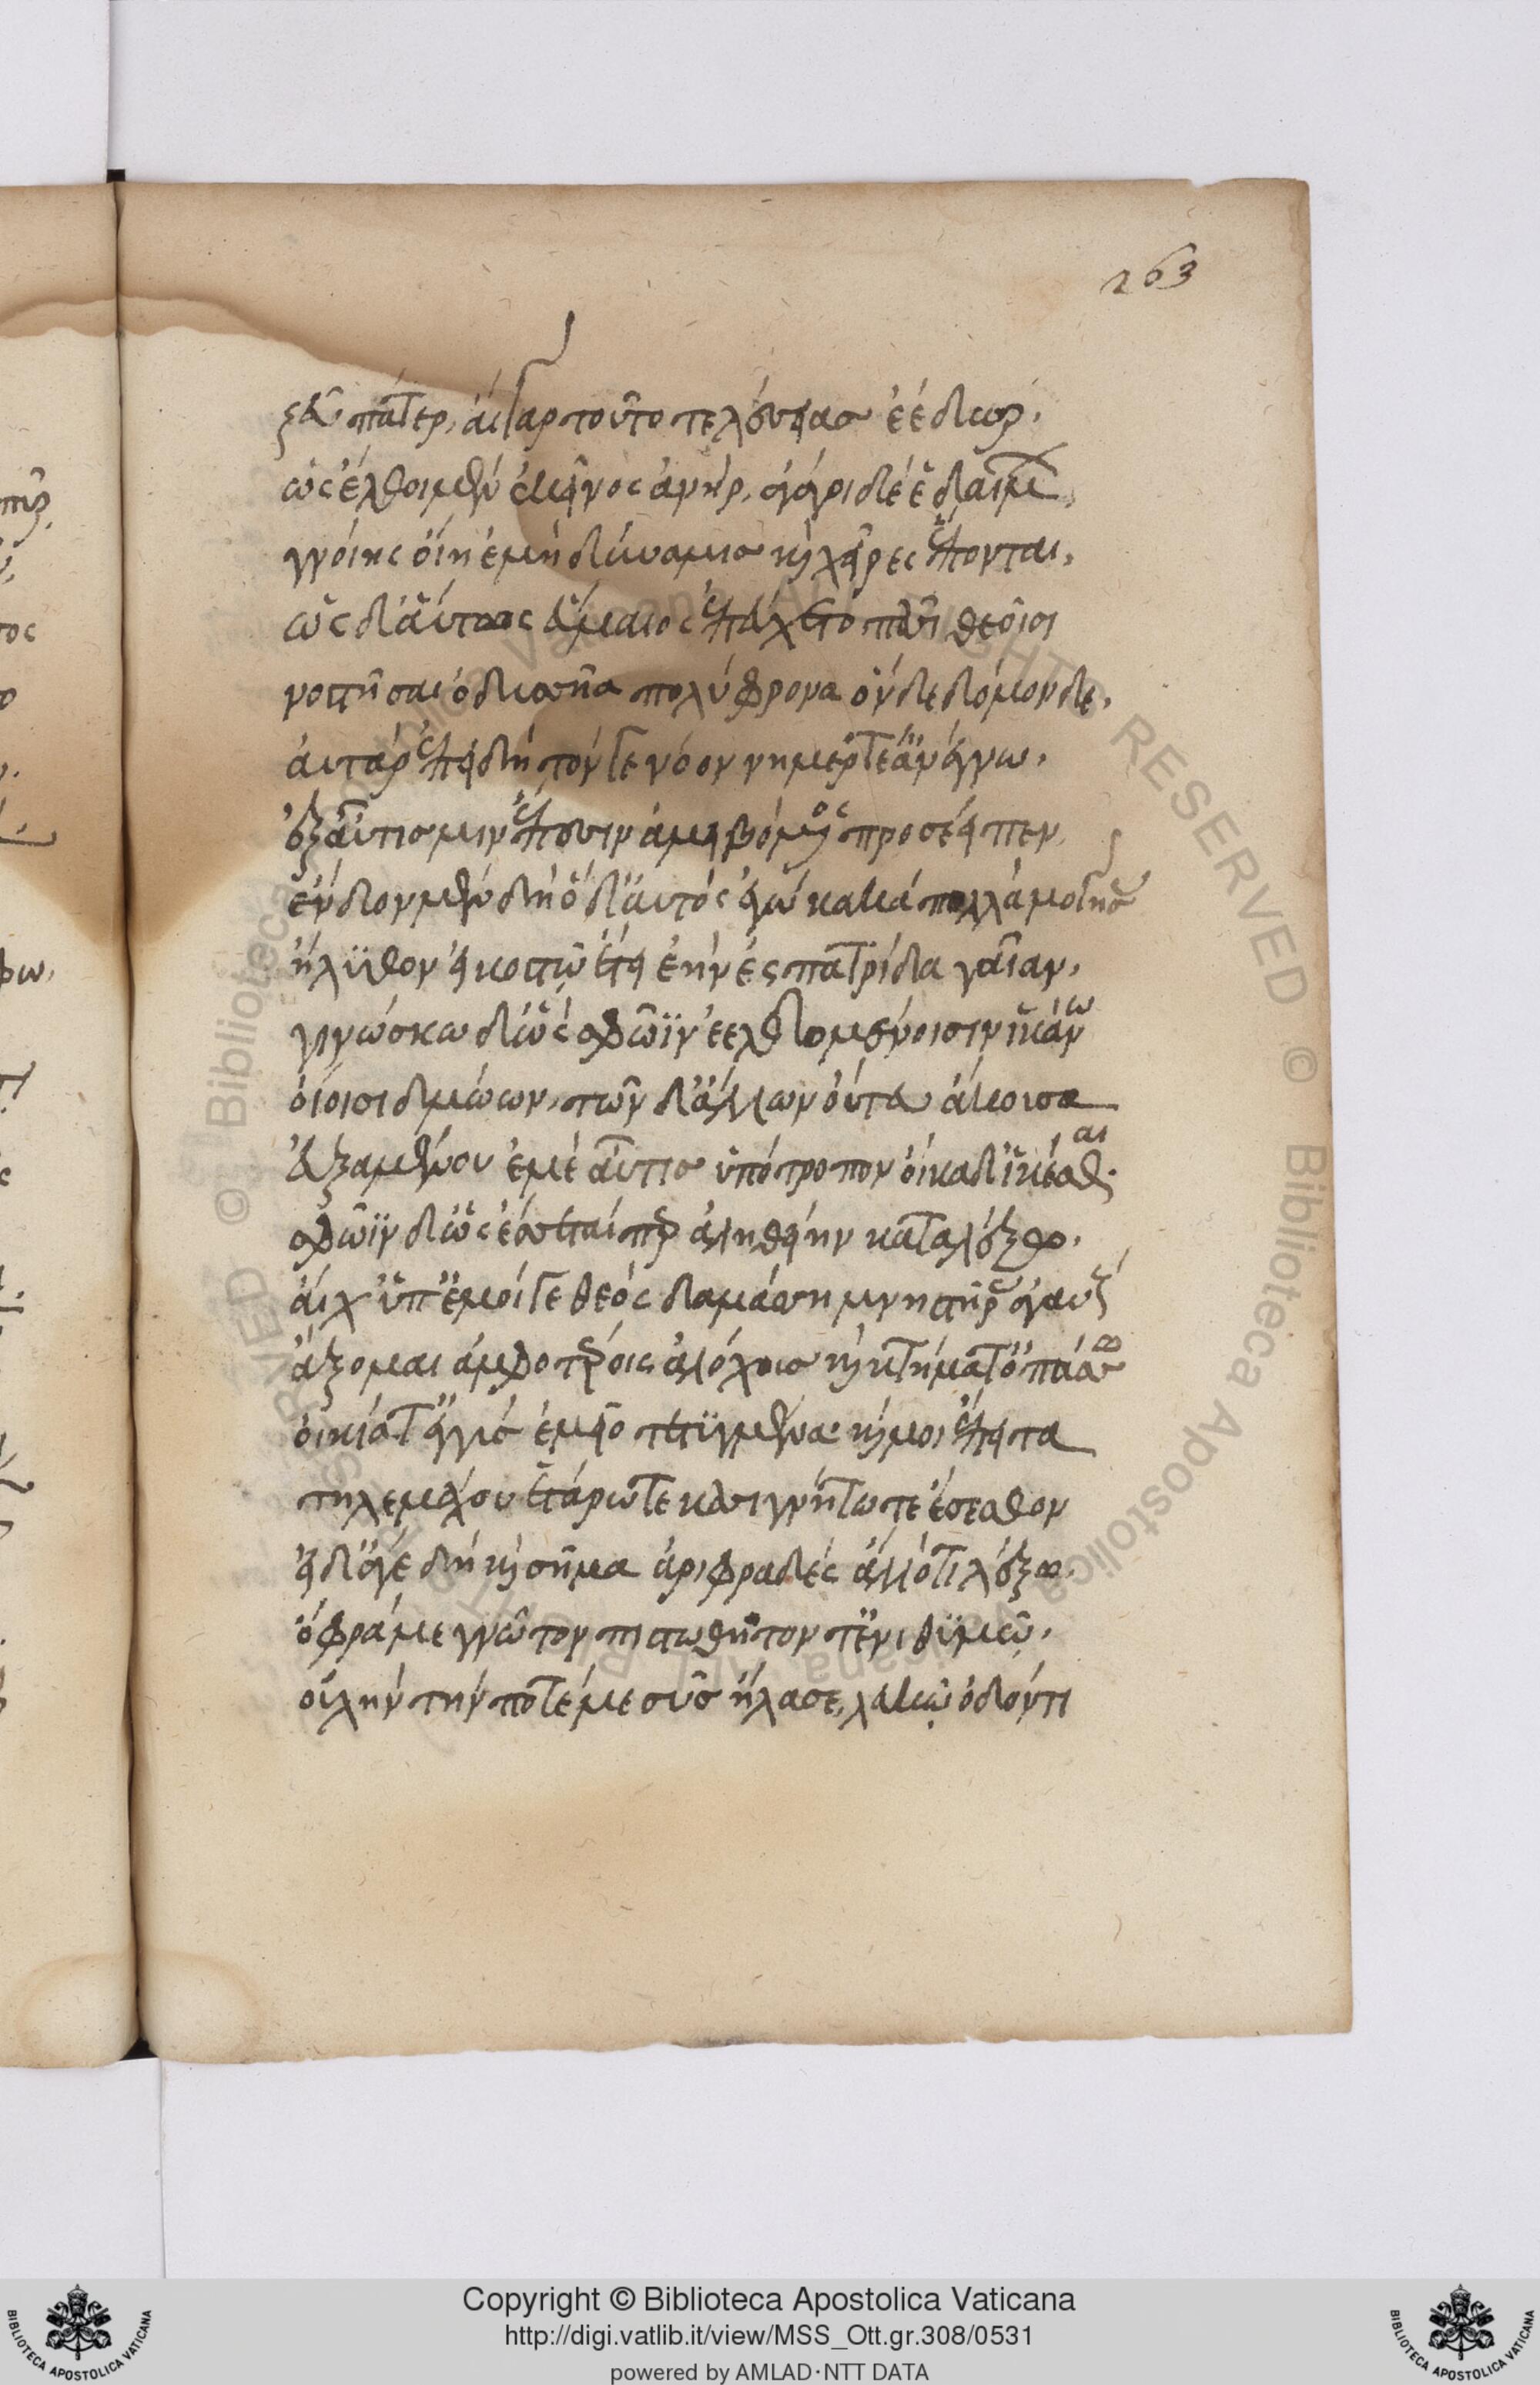 263
ζεῦ πάτερ, αἲ γὰρ τοῦτο τελευτήσειας ἐέλδωρ.
ὡς ἔλθοι μὲν ἐκεῖνος ἀνήρ, ἀγάγοι δέ ἑ δαίμων,
γνοίης οἵη ἐμὴ δύναμις καὶ χεῖρες ἕπονται.
ὣς δ' αὔτως εὔμαιος ἐπεύχετο πᾶσι θεοῖσι
νοστῆσαι ὀδυσῆα πολύφρονα ὅνδε δόμονδε.
αὐτὰρ ἐπειδὴ τόν γε νόον νημερτέ' ἀνέγνω.
ἐξαῦτις μιν ἔπεσσιν ἀμειβόμενος προσέειπεν.
ἔνδον μὲν δὴ ὅδ' αὐτὸς ἐγὼ κακὰ πολλὰ μογήσας
ἤλυθον εἰκοστῷ ἔτει ἐην ἐς πατρίδα γαῖαν.
γινώσκω δ' ὡς σφῶϊν ἐελδομένοισιν ἱκάνω
οἴοισι δμώων, τῶν δ' ἄλλων οὔτευ ἄκουσα
εὐξαμένου ἐμὲ αὖτις ὑπότροπον οἴκαδ' ἱκέσθαι.
σφῶϊν δ' ὡς ἔσεταί περ ἀληθείην καταλέξω.
αἴ χ' ὑπ' ἐμοί γε θεὸς δαμάσῃ μνηστῆρας ἀγαυούς
ἄξομαι ἀμφοτέροις ἀλόχους καὶ κτήματ' ὀπάσσω
οἰκία τ' ἐγγὺς ἐμεῖο τετυγμένα· καί μοι ἔπειτα
τηλεμάχου ἑτάρω τε κασιγνήτω τε ἔσεσθον
εἰ δ' ἄγε δὴ καὶ σῆμα ἀριφραδὲς ἄλλό τι λέξω.
ὄφρά με γνῶτον πιστωθῆτόν τ' ἐνὶ θυμῷ.
οὐλὴν τήν ποτέ με σῦς ἤλασε, λευκῷ ὀδόντι
Copyright © Biblioteca Apostolica Vaticana
http://digi.vatlib.it/view/MSS_Ott.gr.308/0531
powered by AMLAD·NTT DATA